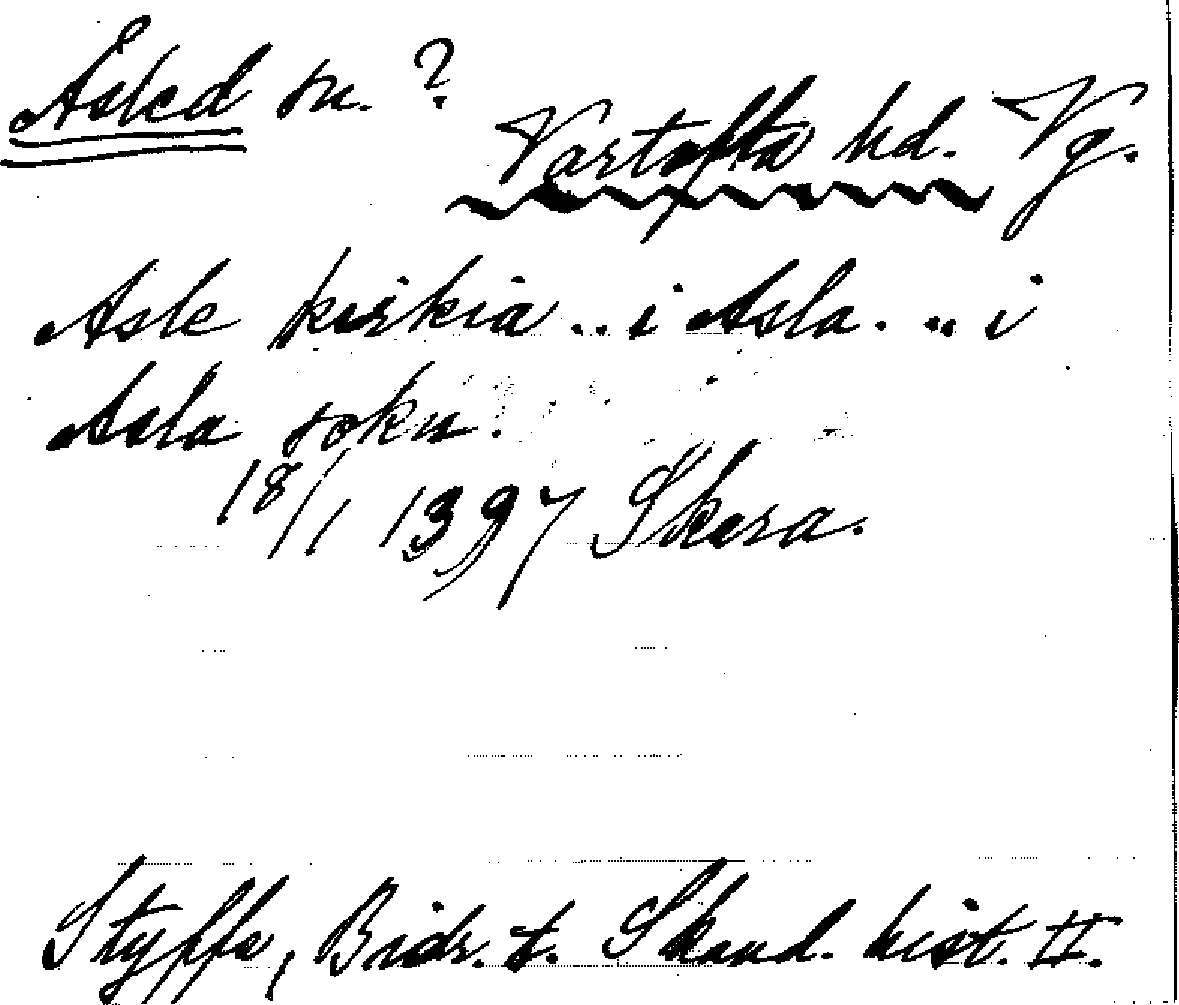 Åsled sn. ?
Vartofta hd. Vg.
Asle kirkia .. i Asla. .. i
Asla sokn.
18/1 1397 Skara.
Styffe, Bidr. t. Skand. hist. II.